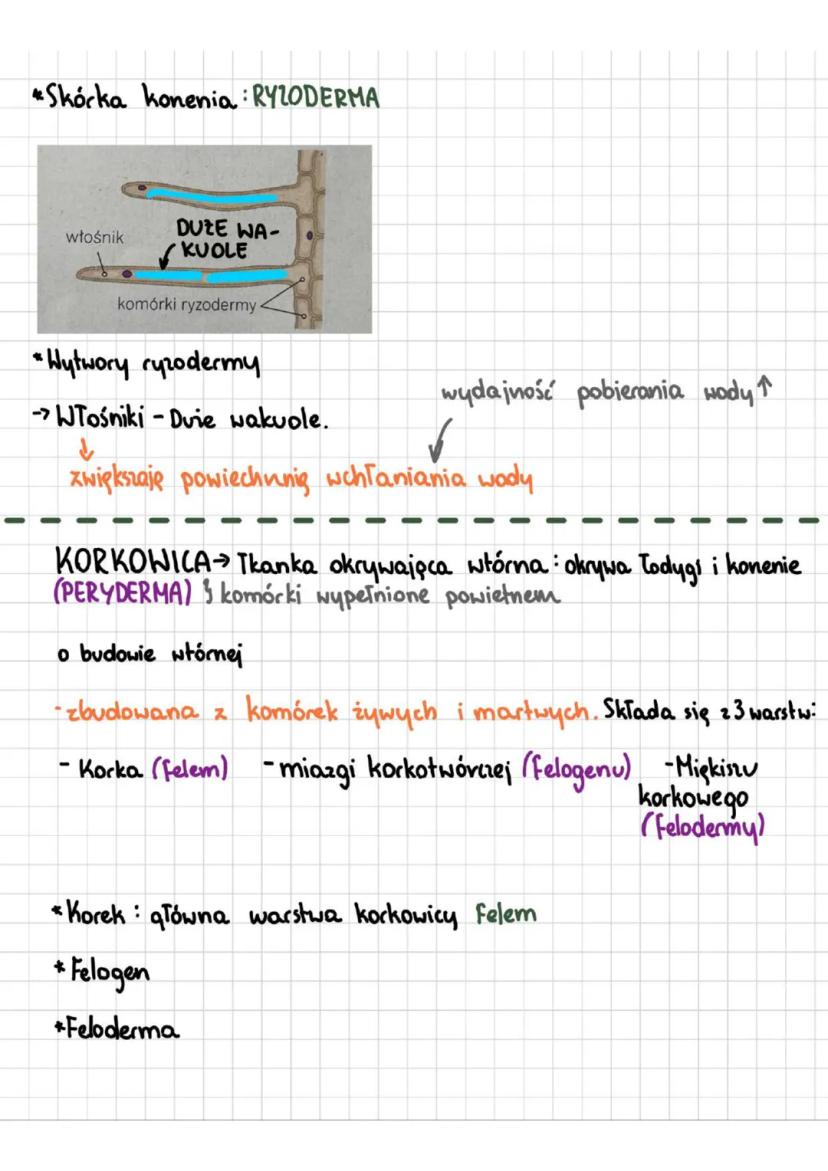 *Skórka korzenia: RYZODERMA
włośnik
DUŻE WA-
KUOLE
komórki ryzodermy
*Wytwory ryzodermy
wydajność pobierania wody ↑
→ Włośniki - Duże wakuole.
↓
zwiększają powierzchnię wchłaniania wody
KORKOWICA → Tkanka okrywająca wtórna: okrywa łodygi i korzenie
(PERYDERMA) komórki wypełnione powietrzem
o budowie wtórnej
- zbudowana z komórek żywych i martwych. Składa się z 3 warstw:
- Korka (felem) - miazgi korkotwórczej (felogenu) - Miękiszu
korkowego
(felodermy)
*Korek: główna warstwa korkowicy felem
*Felogen
*Feloderma